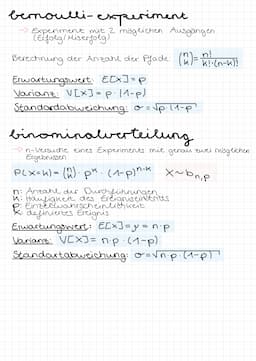 bernoulli-experiment
→ Experiment mit 2 möglichen Ausgängen
(Erfolg/Misserfolg)
Berechnung der Anzahl der Pfade (n k) = n!/k!·(n-k)!
Erwartungswert: E[X]=p
Varianz: V[X]= p·(1-p)
Standardabweichung: σ=√p·(1-p)
binominalverteilung
→ n-Versuche eines Experiments mit genau zwei möglichen
Ergebnissen
P(X=k)= (n k) · p^k · (1-p)^n-k X~b n,p
n: Anzahl der Durchführungen
k: Häufigkeit des Ereigniseintritts
p: Einzelwahrscheinlichkeit
K: definiertes Ereignis
Erwartungswert: E[X]=μ= n·p
Varianz: V[X]= n·p·(1-p)
Standardabweichung: σ=√n·p·(1-p)